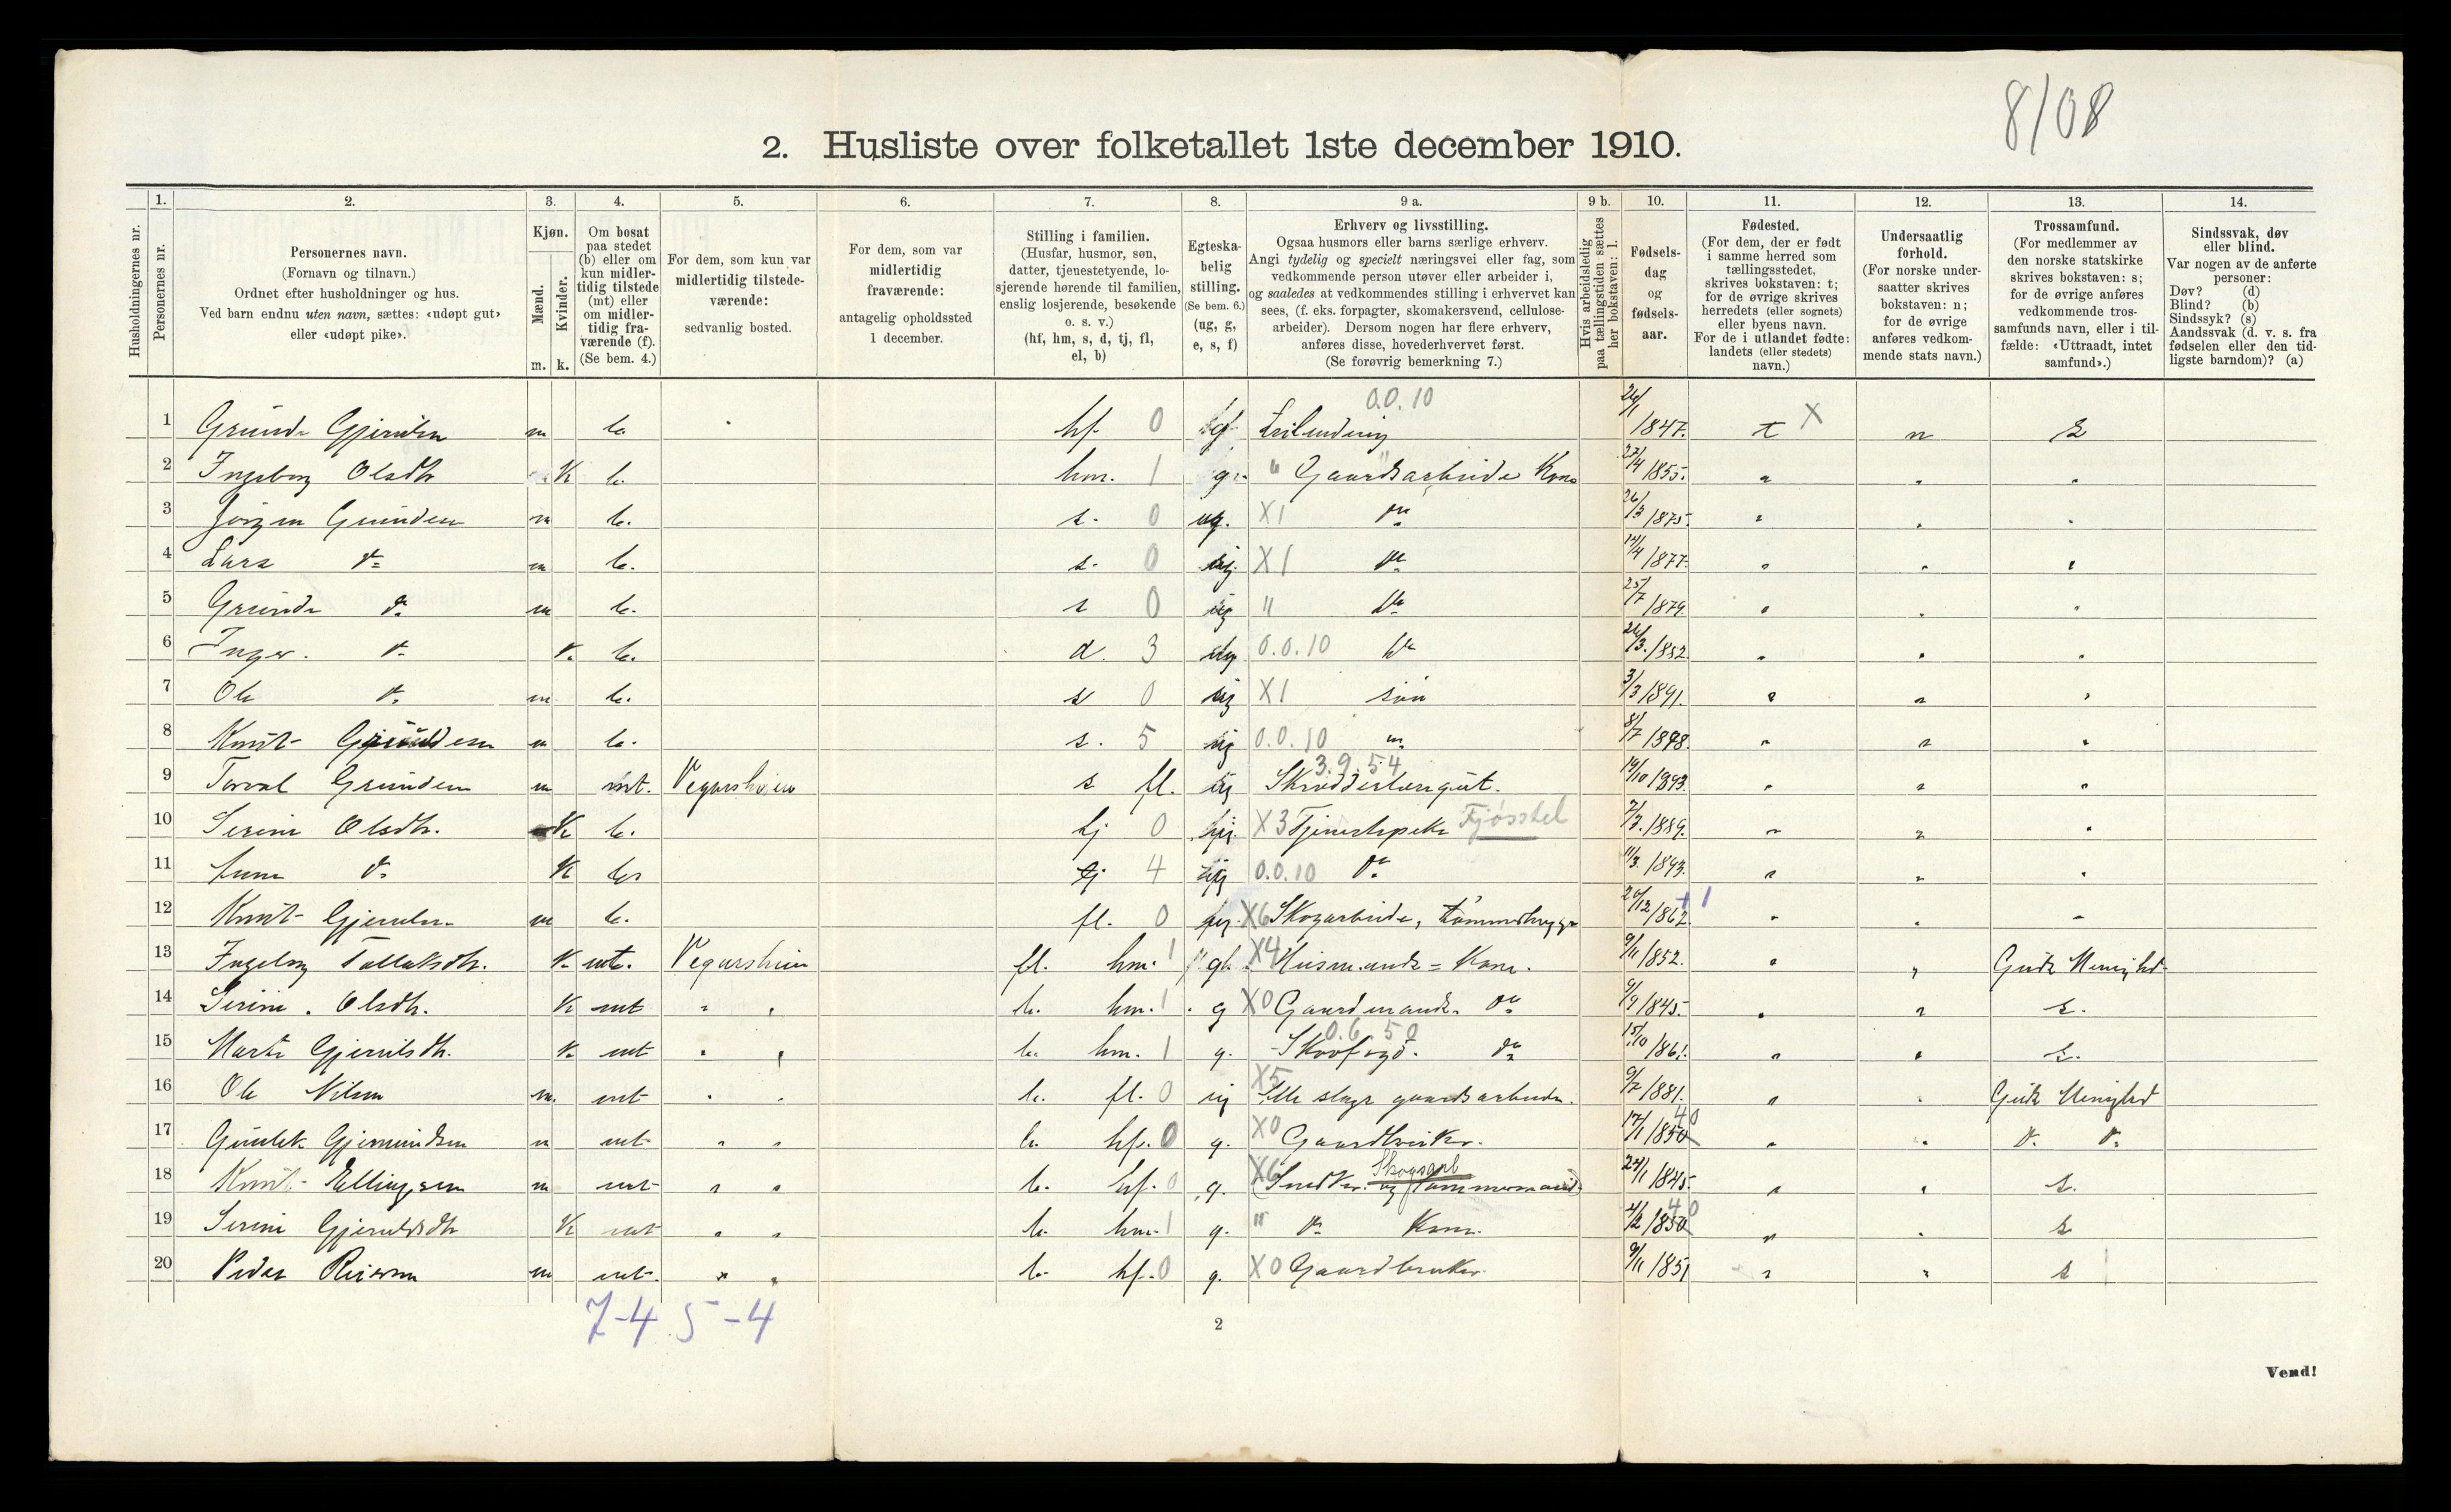 8/08
2. Husliste over folketallet 1ste december 1910.
Husholdningernes nr.
1. Personernes nr.
2. Personernes navn. (Fornavn og tilnavn.) Ordnet efter husholdninger og hus. Ved barn endnu uten navn, sættes: «udøpt gut» eller «udøpt pike».
3. Kjøn. Mænd. m. Kvinder. k.
4. Om bosat paa stedet (b) eller om kun midlertidig tilstede (mt) eller om midlertidig fraværende (f). (Se bem. 4.)
5. For dem, som kun var midlertidig tilstedeværende: sedvanlig bosted.
6. For dem, som var midlertidig fraværende: antagelig opholdssted 1 december.
7. Stilling i familien. (Husfar, husmor, søn, datter, tjenestetyende, losjerende hørende til familien, enslig losjerende, besøkende o. s. v.) (hf, hm, s, d, tj, fl, el, b)
8. Egteskabelig stilling. (Se bem. 6.) (ug, g, e, s, f)
9 a. Erhverv og livsstilling. Ogsaa husmors eller barns særlige erhverv. Angi tydelig og specielt næringsvei eller fag, som vedkommende person utøver eller arbeider i, og saaledes at vedkommendes stilling i erhvervet kan sees, (f. eks. forpagter, skomakersvend, cellulosearbeider). Dersom nogen har flere erhverv, anføres disse, hovederhvervet først. (Se forøvrig bemerkning 7.)
9 b. Hvis arbeidsledig paa tællingstiden sættes her bokstaven: l.
10. Fødselsdag og fødselsaar.
11. Fødested. (For dem, der er født i samme herred som tællingsstedet, skrives bokstaven: t; for de øvrige skrives herredets (eller sognets) eller byens navn. For de i utlandet fødte: landets (eller stedets) navn.)
12. Undersaatlig forhold. (For norske undersaatter skrives bokstaven: n; for de øvrige anføres vedkommende stats navn.)
13. Trossamfund. (For medlemmer av den norske statskirke skrives bokstaven: s; for de øvrige anføres vedkommende trossamfunds navn, eller i tilfælde: «Uttraadt, intet samfund».)
14. Sindssvak, døv eller blind. Var nogen av de anførte personer: Døv? (d) Blind? (b) Sindssyk? (s) Aandssvak (d. v. s. fra fødselen eller den tidligste barndom)? (a)
0.0.10
1 m b. hf. 0 g 26/1 1847. t X n s
2 Ingeborg Olsdtr K b. hm. 1 g. " Gaardsarbeide Kone 27/4 1855. " " "
3 Jörgen Grundesen m b. s. 0 ug. X1 do 26/3 1875. " " "
4 Lars do m b. s. 0 ug X1 do 14/4 1877. " " "
5 Grunde do m b. s 0 ug " do 25/7 1879. " " "
6 Inger do K. b. d. 3 ug 0.0.10 do " " "
7 Ole do m b. s 0 ug X1 søn 3/3 1891. " " "
8 Knut m b. s. 5 ug 0.0.10 " 8/7 1898. " " "
3.9.54
9 m mt. Vegarsheien s fl. ug Skrædderlærgut. 14/10 1893. " " "
10 Serine Olsdtr. K b. tj 0 ug. X3 Tjenestepike Fjøsstel 7/3. 1889. " " "
11 do K b tj 4 ug 0.0.10 do 11/3. 1893. " " "
12 Knut m b. fl. 0 ug. X6 Skogarbeide, tømmerhugger 20/12 1862. +1 " " "
13 Ingeborg Tallaksdtr. K. mt. Vegarsheien fl. hm. 1 g. X4 Husmands = Kone. 9/11 1852. " " Guds Menighed
14 Serine Olsdtr. K mt " " b. hm. 1 g X0 Gaardmands do 9/9 1845. " " s.
0.6.50
15 K. mt " " b. hm. 1 g. do 15/10 1861. " " s.
16 Ole Nilsen m. mt " " b. fl. 0 ug X5 Alle slags gaardsarbeide. 9/7 1881. " " Guds Menighed
17 m mt " " b. hf. 0 g. X0 Gaardbruker. 17/1 1850 40 " " do do
Skogsarb
18 Knut Ellingsen m mt " " b. hf. 0 g. X6 Snedker og Tømmermand 24/1 1845. " " s.
19 Serine K mt " " b. hm. 1 g. " do Kone. 1850 40 " " s
20 Peder m mt. " " b. hf. 0 g. X0 Gaardbruker. 9/11 1851 " " s
7-4 5-4
2
Vend!